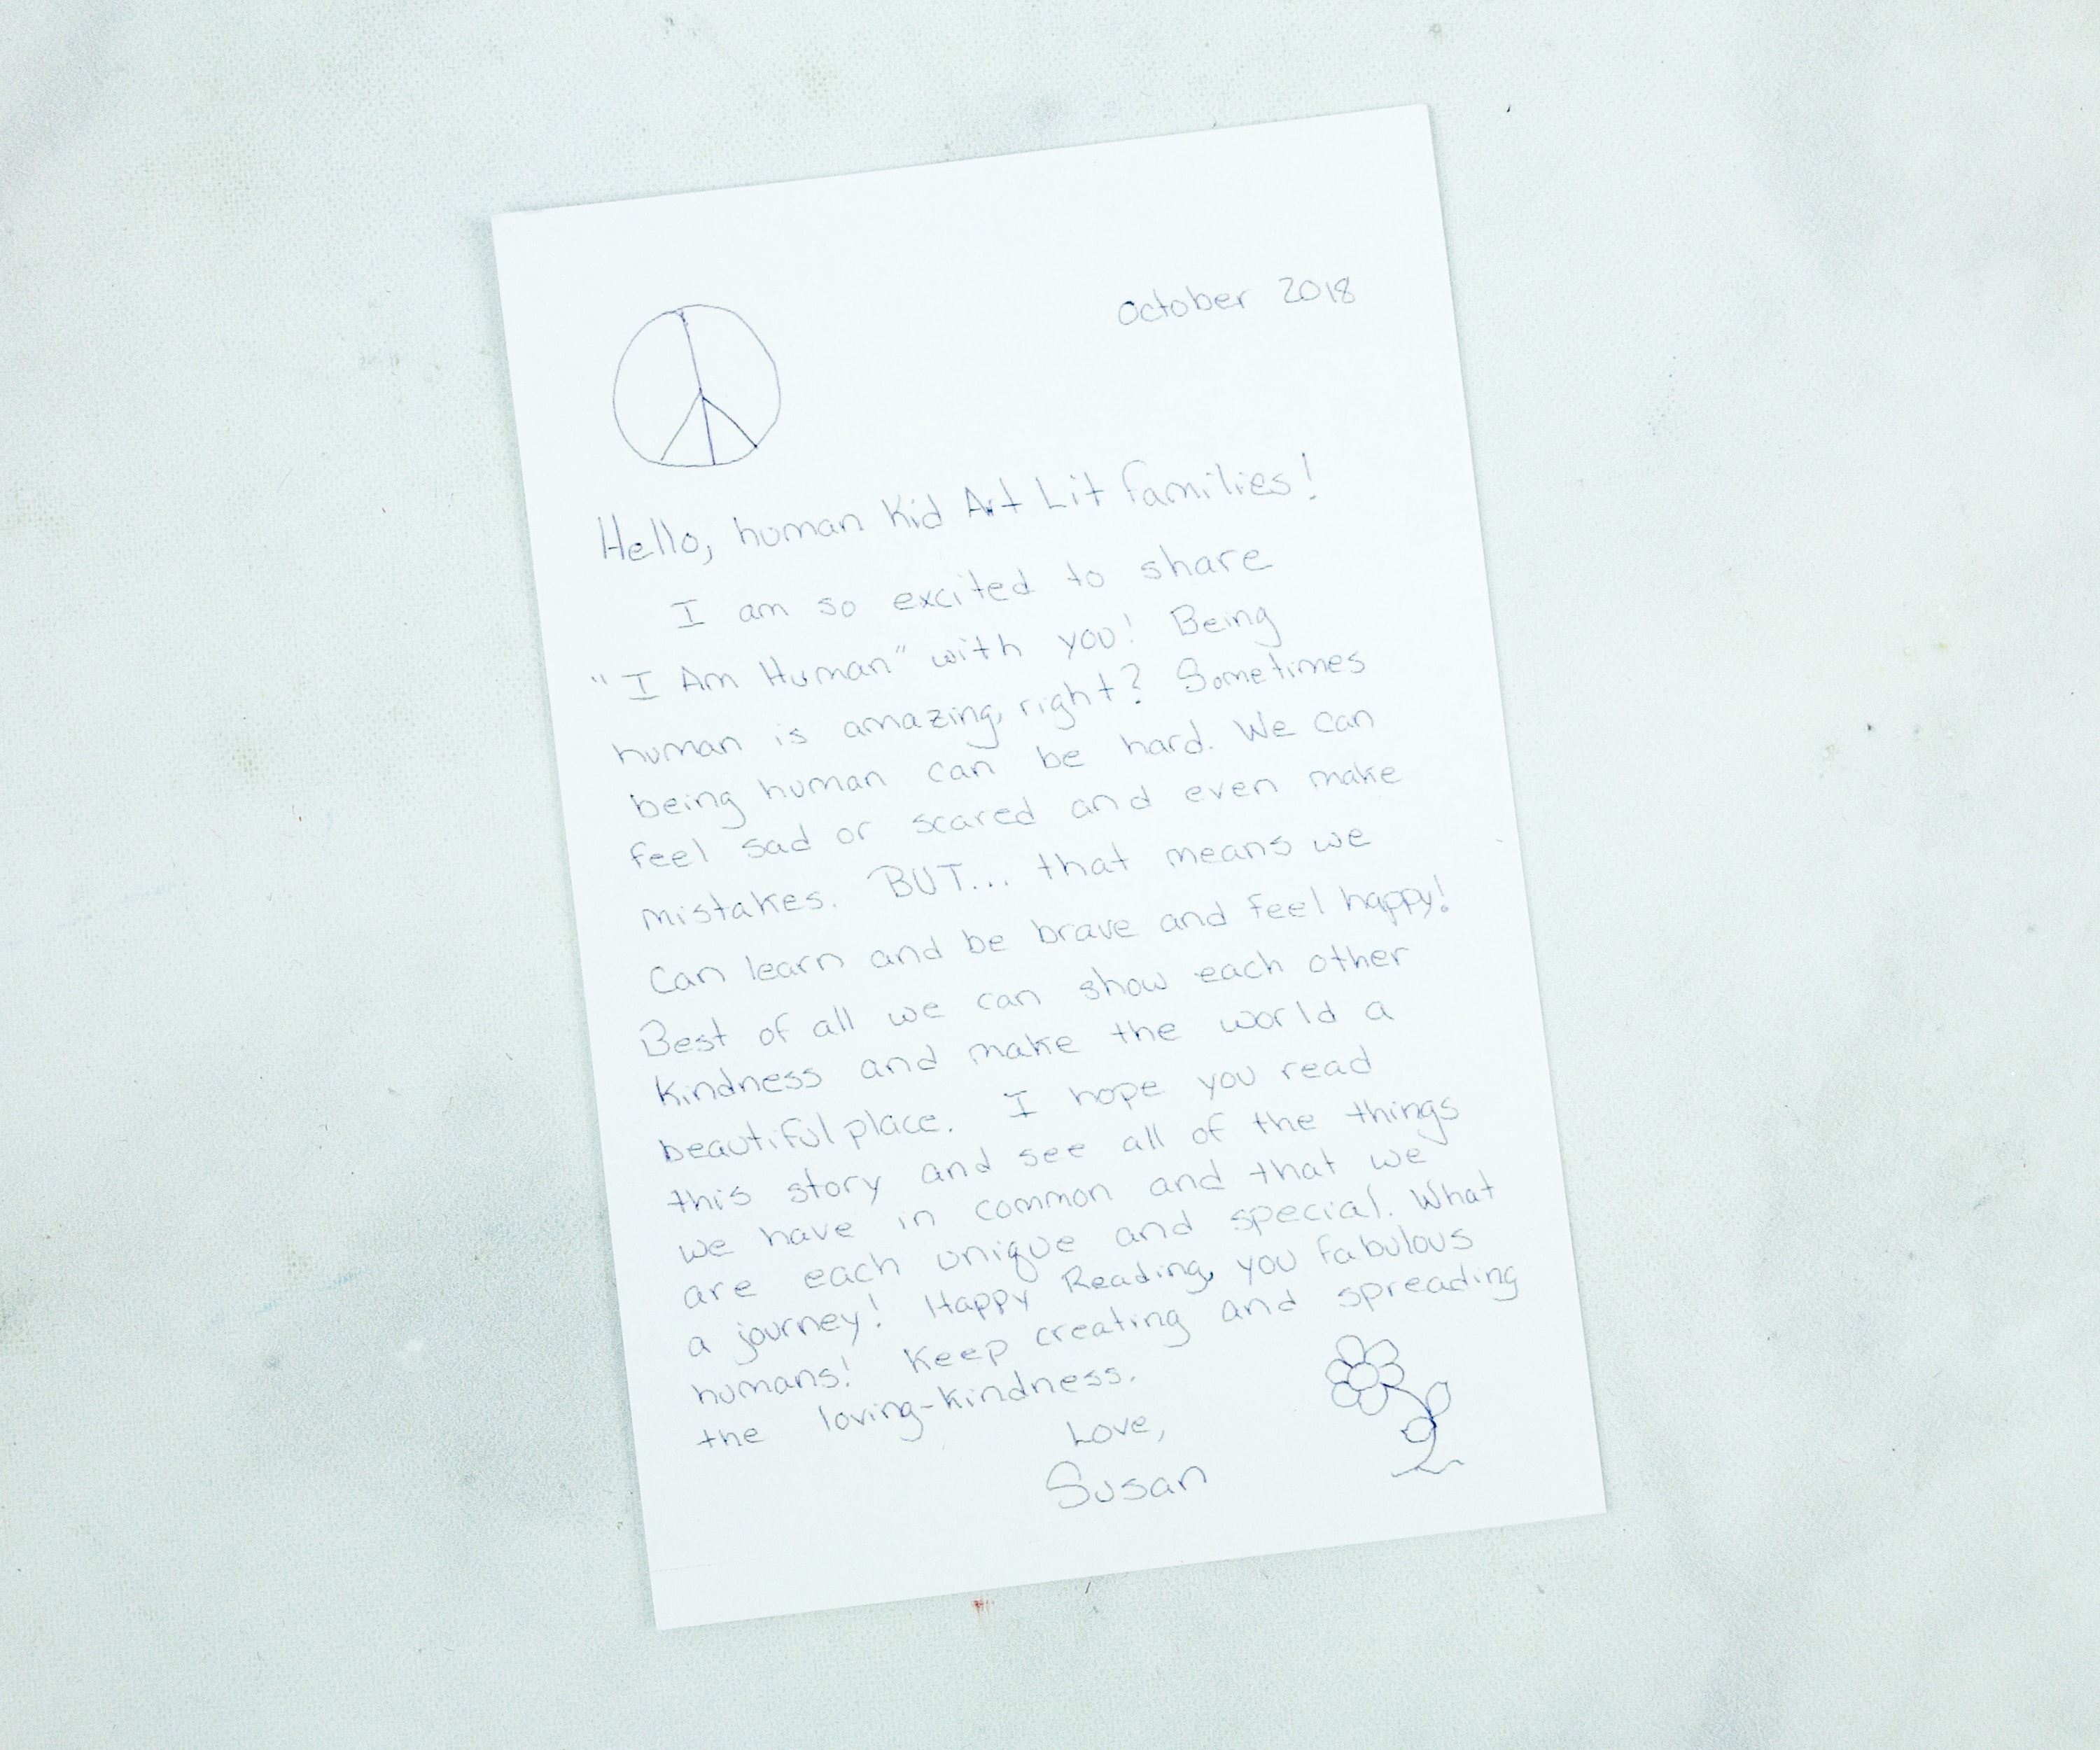 October 2018
Hello, human Kid Art Lit families!
I am so excited to share
"I Am Human" with you! Being
human is amazing, right? Sometimes
being human can be hard. We can
feel sad or scared and even make
mistakes. BUT... that means we
can learn and be brave and feel happy!
Best of all we can show each other
kindness and make the world a
beautiful place. I hope you read
this story and see all of the things
we have in common and that we
are each unique and special. What
a journey! Happy Reading, you fabulous
humans! Keep creating and spreading
the loving-kindness.
Love,
Susan